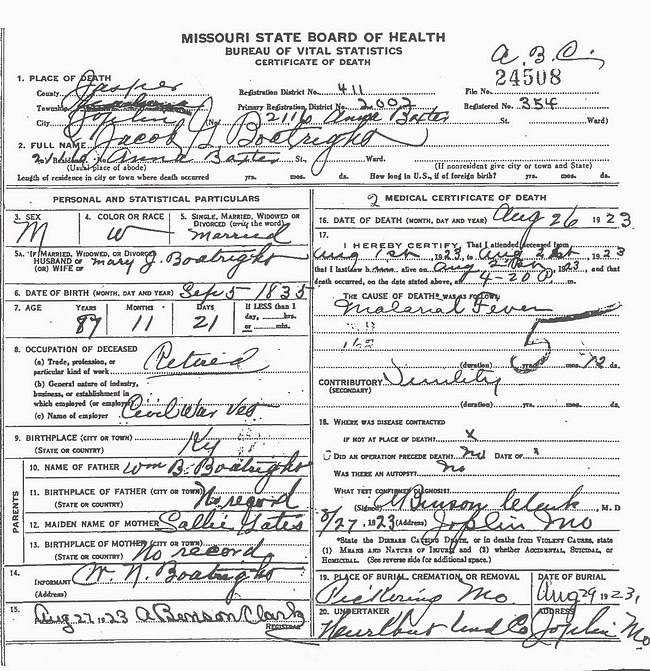 MISSOURI STATE BOARD OF HEALTH
BUREAU OF VITAL STATISTICS
CERTIFICATE OF DEATH
A. B. C.
24508
1. PLACE OF DEATH
County Jasper Registration District No. 411 File No.
Township Primary Registration District No. 2002 Registered No. 354
City Joplin (No. 2116 Annie Baxter St. Ward)
2. FULL NAME Jacob G. Boatright
(a) Residence. No. 2116 Annie Baxter St., Ward.
(Usual place of abode) (If nonresident give city or town and State)
Length of residence in city or town where death occurred yrs. mos. ds. How long in U.S., if of foreign birth? yrs. mos. ds.
PERSONAL AND STATISTICAL PARTICULARS
3. SEX 4. COLOR OR RACE 5. SINGLE, MARRIED, WIDOWED OR
DIVORCED (write the word)
M W Married
5A. IF MARRIED, WIDOWED, OR DIVORCED
HUSBAND OF
(OR) WIFE OF Mary J. Boatright
6. DATE OF BIRTH (MONTH, DAY AND YEAR) Sep 5 1835
7. AGE YEARS MONTHS DAYS If LESS than 1
day, hrs.
or min.
87 11 21
8. OCCUPATION OF DECEASED
(a) Trade, profession, or
particular kind of work Retired
(b) General nature of industry,
business, or establishment in
which employed (or employer)
(c) Name of employer Civil War Vet
9. BIRTHPLACE (CITY OR TOWN)
(STATE OR COUNTRY) Ky
PARENTS
10. NAME OF FATHER Wm B. Boatright
11. BIRTHPLACE OF FATHER (CITY OR TOWN) No record
(STATE OR COUNTRY)
12. MAIDEN NAME OF MOTHER Sallie Yates
13. BIRTHPLACE OF MOTHER (CITY OR TOWN)
(STATE OR COUNTRY) No record
14.
INFORMANT W. N. Boatright
(Address)
15.
Aug 27 1923 A Benson Clark
REGISTRAR
2 MEDICAL CERTIFICATE OF DEATH
16. DATE OF DEATH (MONTH, DAY AND YEAR) Aug 26 1923
17.
I HEREBY CERTIFY, That I attended deceased from
Aug 1st, 1923, to Aug, 1923
that I last saw h alive on Aug, 1923, and that
death occurred, on the date stated above, at 4-20 P m.
THE CAUSE OF DEATH* WAS AS FOLLOWS:
Malarial Fever
(duration) yrs. mos. 12 ds.
CONTRIBUTORY
(SECONDARY)
(duration) yrs. mos. ds.
18. WHERE WAS DISEASE CONTRACTED
IF NOT AT PLACE OF DEATH? X
DID AN OPERATION PRECEDE DEATH? No DATE OF X
WAS THERE AN AUTOPSY? No
WHAT TEST CONFIRMED DIAGNOSIS?
(Signed) A Benson Clark, M. D
8/27, 1923 (Address) Joplin Mo
*State the DISEASE CAUSING DEATH, or in deaths from VIOLENT CAUSES, state
(1) MEANS AND NATURE OF INJURY, and (2) whether ACCIDENTAL, SUICIDAL, or
HOMICIDAL. (See reverse side for additional space.)
19. PLACE OF BURIAL, CREMATION, OR REMOVAL DATE OF BURIAL
Pickering Mo Aug 29 1923
20. UNDERTAKER ADDRESS
Hurlbut Und Co Joplin Mo